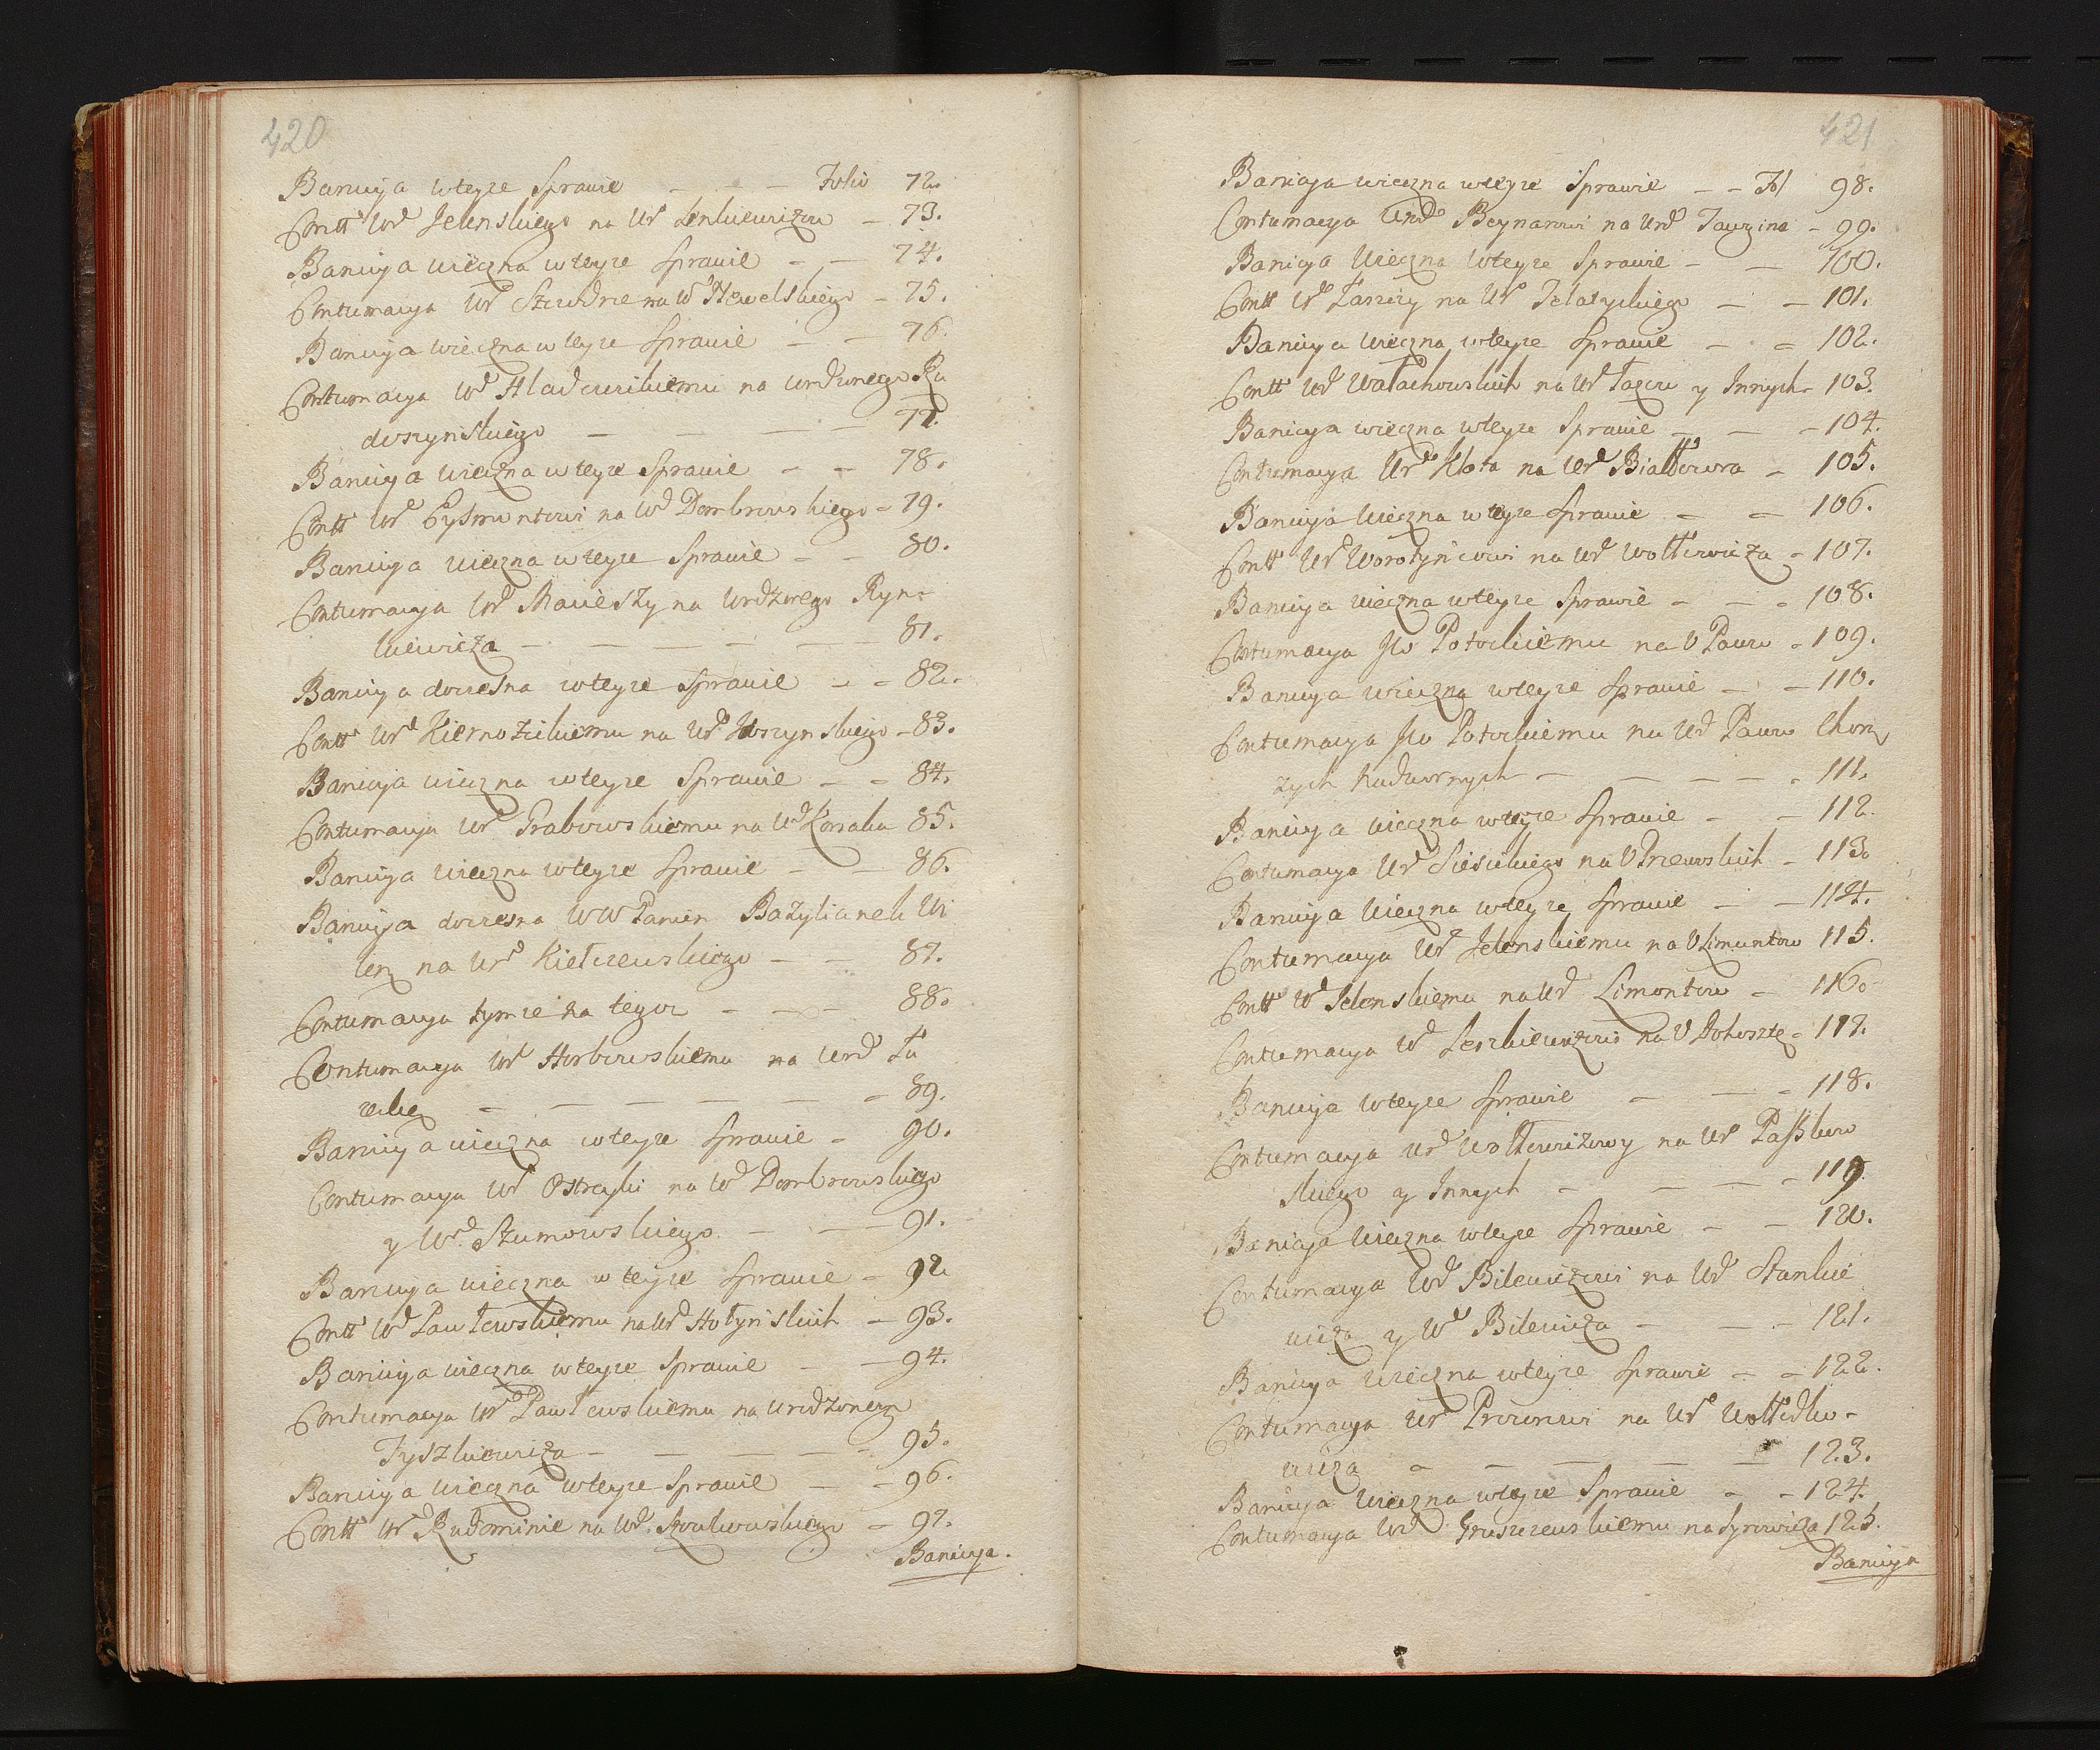 420
Banicya wteyze Sprawie - - - Folio 72.
Contt Urd Jelenskiego na Ur Lenkiewiczow - 73.
Banicya wieczna wteyze Sprawie - - 74.
Contumacya Ur Sztudne na W Hewelskiego - 75.
Banicya wieczna wteyze Sprawie - - 76.
Contumacya Wd Hladowickiemu na urdzonego Ra
doszynskiego - - - - - 77.
Banicya wieczna wteyze Sprawie - - 78.
Contt Ur Eysmontowi na Wd Dombrowskiego - 79.
Banicya wieczna wteyze Sprawie - - 80.
Contumacya Ur Macieszy na Urdzonego Ryn-
kiewicza - - - - - 81.
Banicya doczesna wteyze Sprawie - - 82.
Contt Urd Kiernozickiemu na Urd Hoszynskiego - 83.
Banicya wieczna wteyze Sprawie - - 84.
Contumacya Ur Grabowskiemu na Wd Korsaka 85.
Banicya wieczna wteyze Sprawie - - 86.
Banicya doczesna WW Panien Bazylianek Wi
len na Urd Kiełczewskiego - - 87.
Contumacya tymze na tegoz - - - 88.
Contumacya Ur Horbowskiemu na Urd Tu
- - - - - - 89.
Banicya wieczna wteyze Sprawie - 90.
Contumacya Ur Ostreyki na Wd Dombrowskiego
y Wrd Szumowskiego - - - 91.
Banicya wieczna wteyze Sprawie - 92.
Contt Wd Pawłowskiemu na Ur Hołynskich - 93.
Banicya wieczna wteyze Sprawie - - 94.
Contumacya Ur Pawłowskiemu na urodzonego
Tyszkiewicza - - - - - 95.
Banicya wieczna wteyze Sprawie - - 96.
Contt Ur Rudominie na Wd Szulcowskiego - 97.
Banicya.
421
Banicya wieczna wteyze Sprawie - - Fol 98.
Contumacya Urd Beynarowi na Urd Tawgina - 99.
Banicya Wieczna Wteyze Sprawie - - 100.
Contt Ur Zanizy na Ur Jelatyckiego - - 101.
Banicya wieczna wteyze Sprawie - - 102.
Contt Urd Wałachowskich na Ur Łazow y Innych - 103.
Banicya wieczna wteyze Sprawie - - - 104.
Contumacya Urd Kłota na Urd Białłozora - 105.
Banicya wieczna wteyze Sprawie - - 106.
Contt Ur Worotyncowi na Ur Wołłowicza - 107.
Banicya wieczna wteyze Sprawie - - - 108.
Contumacya Jw Potockiemu na U Pacow - 109.
Banicya wieczna wteyze Sprawie - - 110.
Contumacya Jw Potockiemu na Ud Pacow Chorą
zych Nadwornych - - - - - 111.
Banicya wieczna wteyze Sprawie - - 112.
Contumacya Ur Siesickiego na U Pniewskich - 113.
Banicya wieczna wteyze Sprawie - - 114.
Contumacya Ur Jelenskiemu na U Limontow 115.
Contt Wd Jelenskiemu na Ud Limontow - 116.
Contumacya W Leszkiewiczowi na U Dohosztę - 117.
Banicya wteyze Sprawie - - - 118.
Contumacya Urd Wołłowiczowey na Ur Paszkow
skiego y Innych - - - - 119.
Banicya wieczna wteyze Sprawie - - 120.
Contumacya Wd Bilewiczowi na Ud Stankie
wicza y Wd Bilewicza - - - 121.
Banicya wieczna wteyze Sprawie - - 122.
Contumacya Ur Prozorowi na Ur Wołłodko-
wicza - - - - - 123.
Banicya wieczna wteyze Sprawie - - 124.
Contumacya Ur Gruszewskiemu na Syrowicza 125.
Banicya